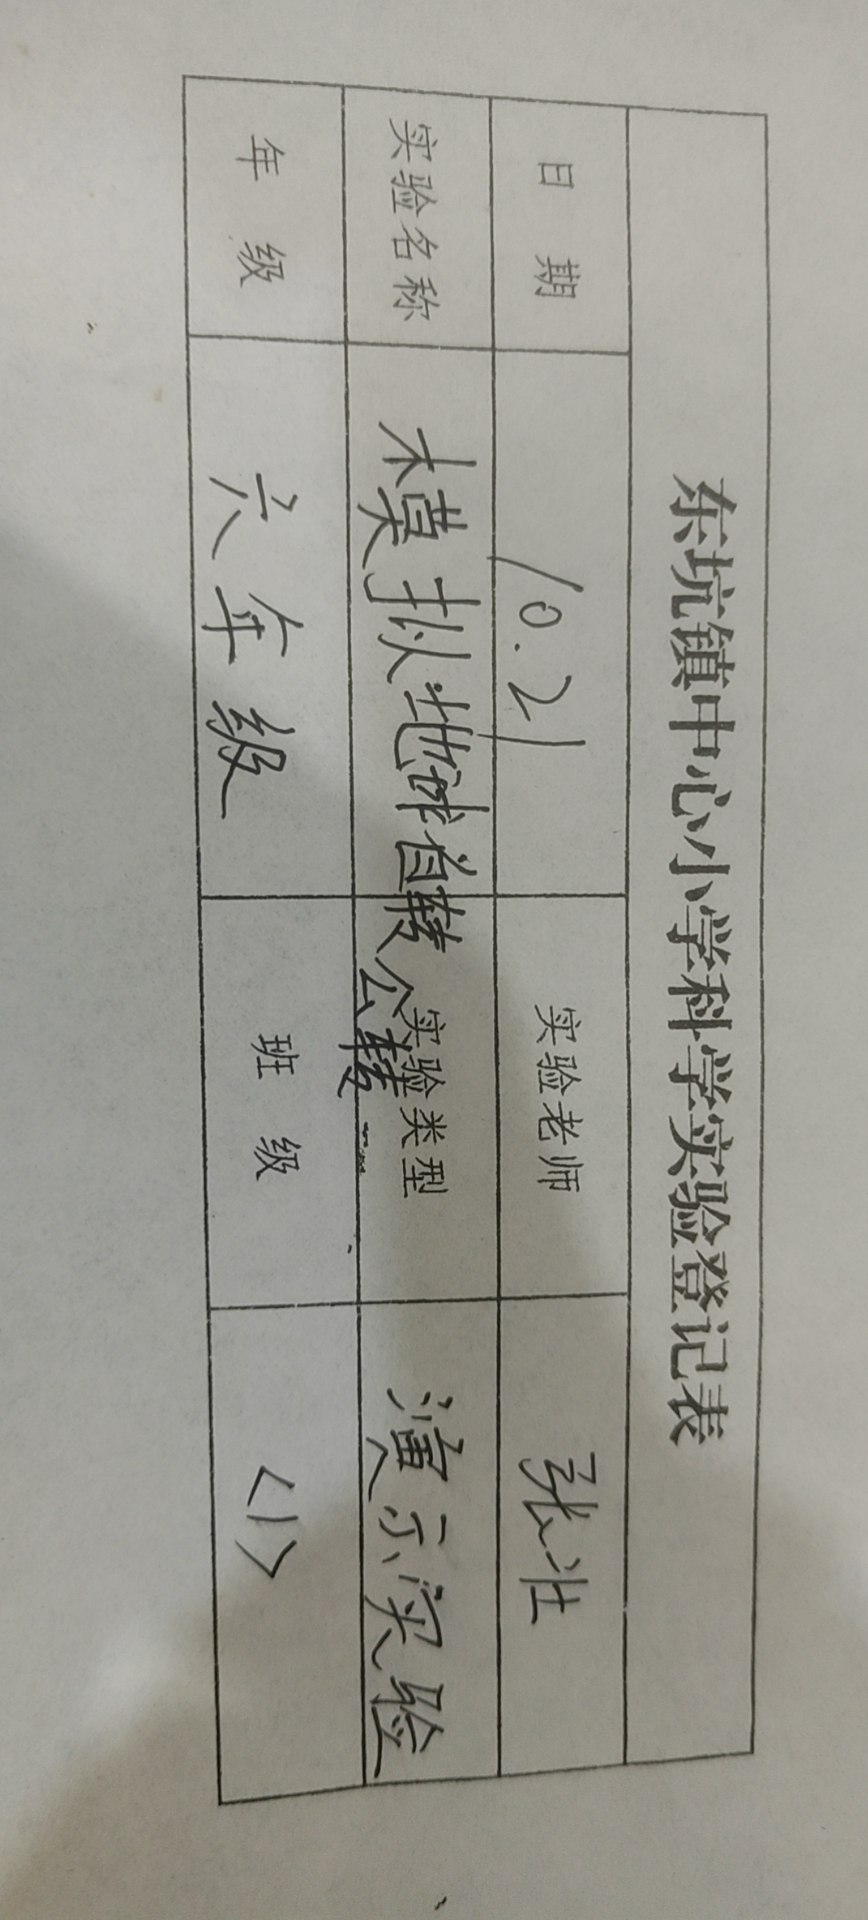 东坑镇中心小学科学实验登记表
日期 10.21 实验老师 张壮
实验名称 模拟地球自转公转 实验类型 演示实验
年级 六年级 班级 <1>